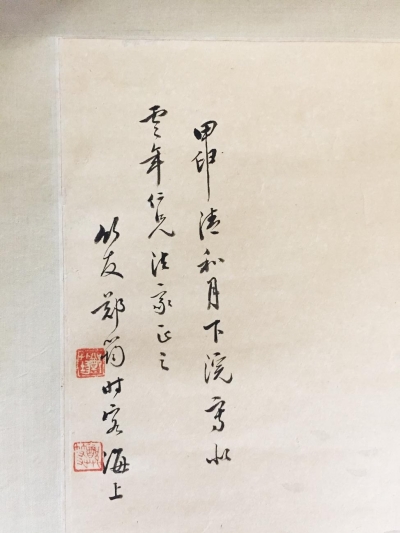 甲申清和月下浣寫似
雲年仁兄法家正之
竹友鄭筠时客海上